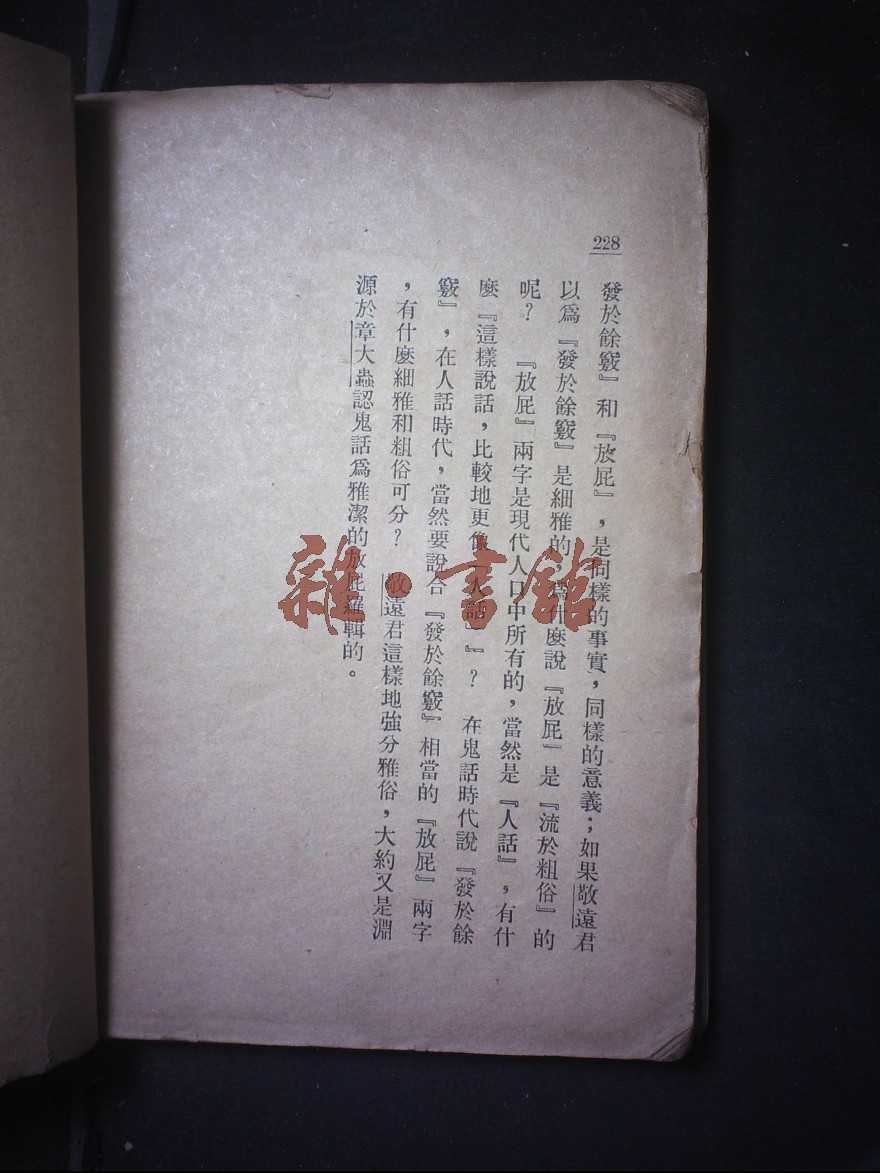 228
發於餘竅』和『放屁』，是同樣的事實，同樣的意義；如果敬遠君
以爲『發於餘竅』是細雅的，爲什麼說『放屁』是『流於粗俗』的
呢？　『放屁』兩字是現代人口中所有的，當然是『人話』，有什
麼『這樣說話，比較地更像『人話』』？　在鬼話時代說『發於餘
竅』，在人話時代，當然要說合『發於餘竅』相當的『放屁』兩字
，有什麼細雅和粗俗可分？　敬遠君這樣地強分雅俗，大約又是淵
源於章大蟲認鬼話爲雅潔的放屁羅輯的。
雜·書館